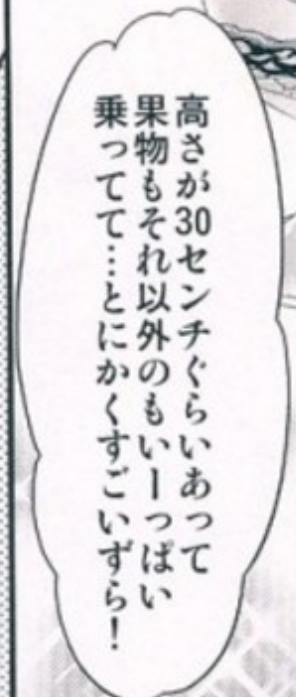 高さが30センチぐらいあって
果物もそれ以外のもいーっぱい
乗ってて…とにかくすごいずら！